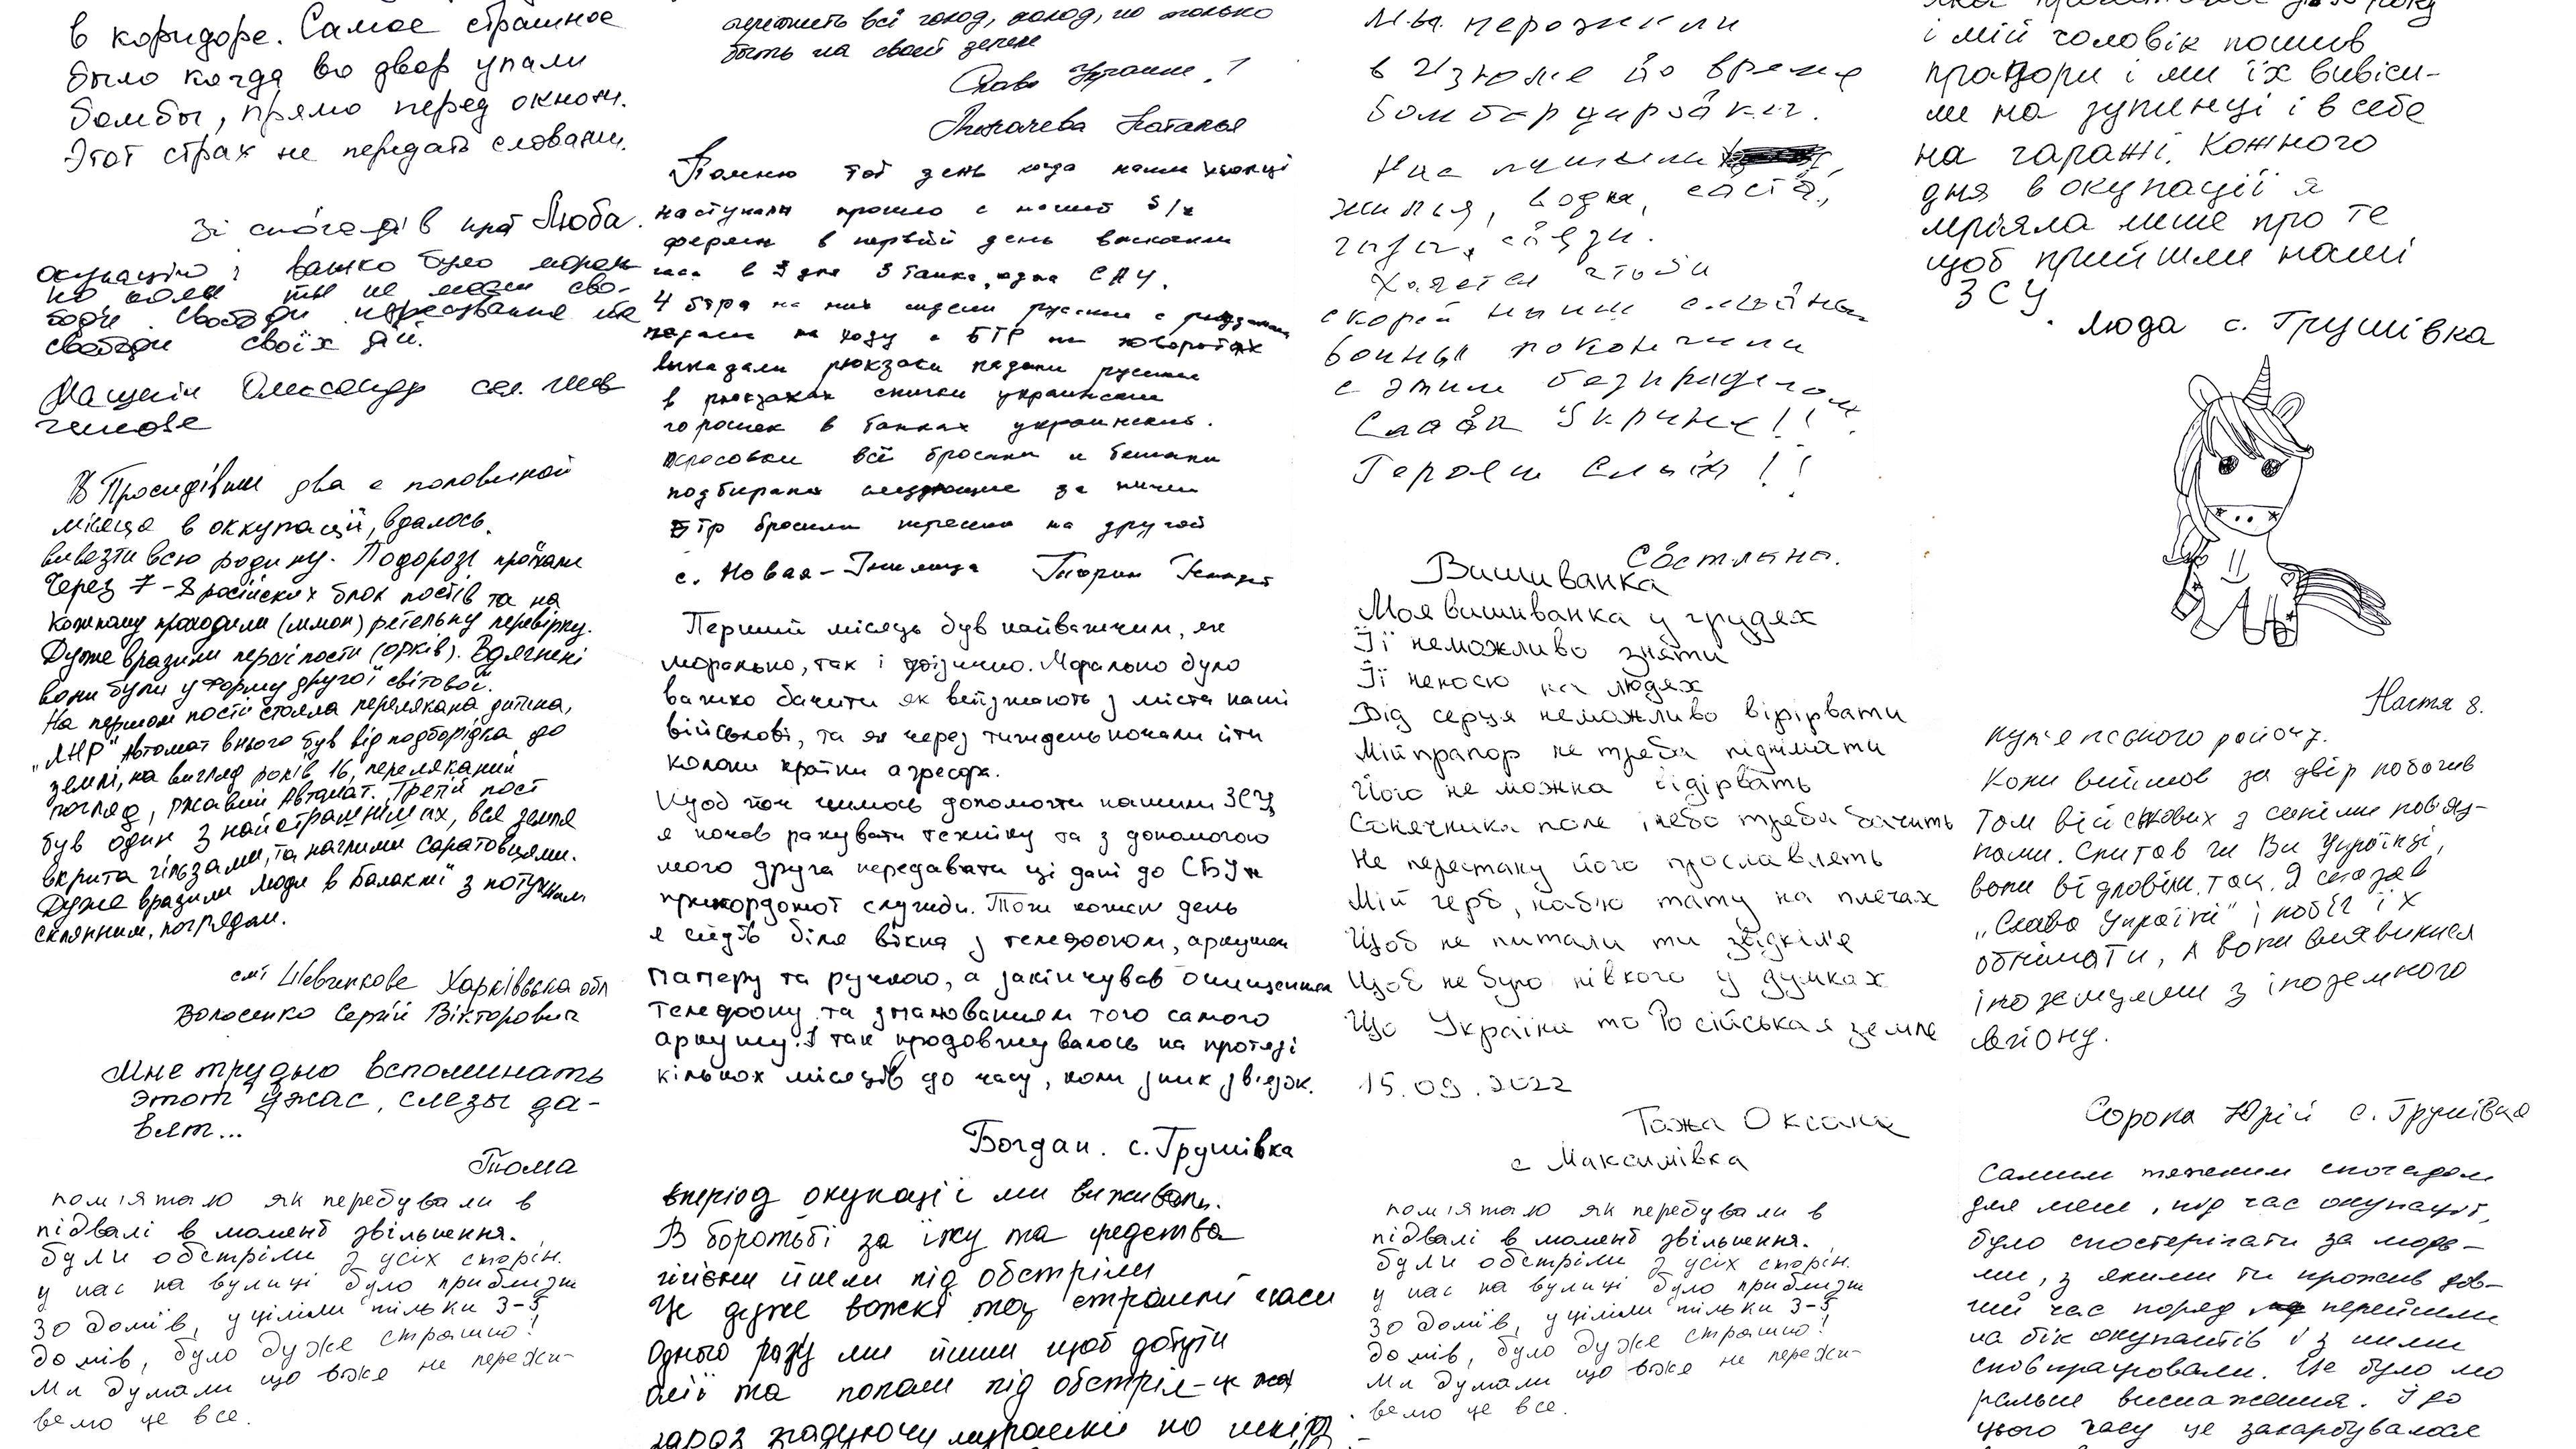 в коридоре. Самое страшное
было когда во двор упали
бомбы, прямо перед окном.
Этот страх не передать словами.
Зі спогадів прт Люба.
окупацію і важко було мораль
но коли ти не маєш сво-
боди. Свободи пересування та
свободи своїх дій.
Олександр сел. Шев
ченкове
В Просидівши два с половиной
місяца в оккупації, вдалось
вивезти всю родину. Подорозі проїхали
Через 7-8 російских блок постів та на
кожному проходили (шмон) ретельну перевірку.
Дуже вразили перві пости (орків). Вдягнені
вони були у форму другої світової.
На первом пості стояла перелякана дитина,
"ЛНР" Автомат внього був від подборідка до
землі, на вигляд років 16, переляканий
погляд, ржавий Автомат. Третій пост
був один з найстрашніших, вся земля
вкрита гільзами, та наглими саратовцами.
Дуже вразили люди в Балаклії з потухшим
склянним, поглядом.
смт Шевченкове Харківська обл
Волосенко Сергій Вікторович
Мне трудно вспоминать
этот ужас, слезы да-
вят...
Тома
помıятаю як перебували в
підвалі в момент звільнення.
були обстріли з усіх сторін.
у нас на вулиці було приблизн
30 домів, уціліли тільки 3-5
домів, було дуже страшно!
Ми думали що вже не пережи-
вемо це все.
пережить всі голод, холод, но только
быть на своей земле
Слава Украине!
Наталья
Помню тот день когда наши хлопці
наступали прошло с нашей s/х
фермы в первый день выскакали
в 3 дня 3 танка, одна САУ.
4 бтра на них сидели русские с рюкзаками
падали на ходу с БТР на поворотах
выпадали рюкзаки падали русские
в рюкзаках спички украинские
горошек в банках украинский.
кросовки всё бросали и бежали
подбирали следующие за ними
БТР бросили пересели на другой
с. Новая-Гнилица
Перший місяць був найважчим, як
морально, так і фізично. Морально було
важко бачити як виїзжають з міста наші
військові, та як через тиждень почали їти
колони країни агресора.
Щоб хоч чимось допомогти нашим ЗСУ
я почав рахувати техніку та з допомогою
мого друга передавати ці дані до СБУ и
прикордоної служби. Тож кожен день
я сидів біля вікна з телефоном, аркушем
паперу та ручкою, а закінчував очищенням
телефону та зпалюванням того самого
аркушу. І так продовжувалось на протязі
кількох місяців до часу, коли зник звідзок.
Богдан. с. Грушівка
вперіод окупації ми виживали.
В боротьбі за їжу та средства
гігієни йшли під обстріли
Це дуже важкі та страшні часи
Одного разу ми йшли щоб добути
олії та попали під обстріл
зараз згадуючи мурашки по шкірі
Мы пережили
в Изюме во время
бомбардировки.
Нас лишили
жилья, воды, света,
газа, связи.
Хочется чтобы
скорей наши славные
воины покончили
с этим безпределом.
Слава Украине!!
Героям Слава!!
Светлана.
Вишиванка
Моя вишиванка у грудях
Її неможливо зняти
Її неносю на людях
Від серця неможливо вірірвати
Мій прапор не треба піднімати
Його не можна відірвать
Сонячника поле інебо треба бачить
Не перестану його прославлять
Мій герб, набю тату на плечах
Щоб не питали ти звідкіля
Щоб не було нівкого у думках
Що Україна то Російськая земля
15.09.2022
Тажа Оксана
с Максимівка
помıятаю як перебували в
підвалі в момент звільнення.
були обстріли з усіх сторін.
у нас на вулиці було приблизн
30 домів, уціліли тільки 3-5
домів, було дуже страшно!
Ми думали що вже не пережи-
вемо це все.
і мій чоловік пошив
прапори і ми їх вивіси-
ли на зупинці і в себе
на гаражі. Кожного
дня в окупації я
мріяла лише про те
щоб прийшли наші
ЗСУ.
Люда с. Грушівка
Настя 8.
Куп'янського району.
Коли вийшов за двір побачив
Том військових з синіми пов'яз-
ками. Спитав чи Ви Українці,
вони відповіли так. Я сказав
"Слава Україні" і побіг їх
обнімати, А вони виявилися
іноземцями з іноземного
легіону.
Сорока Юрій с. Грушівка
Самим тяжким спогадом
для мене, під час окупації,
було спостерігати за людь-
ми, з якими ти прожив дов-
гий час поряд перейшли
на бік окупантів і з ними
співпрацювали. Це було мо
ральне виснаження. І до
цього часу це закарбувалося